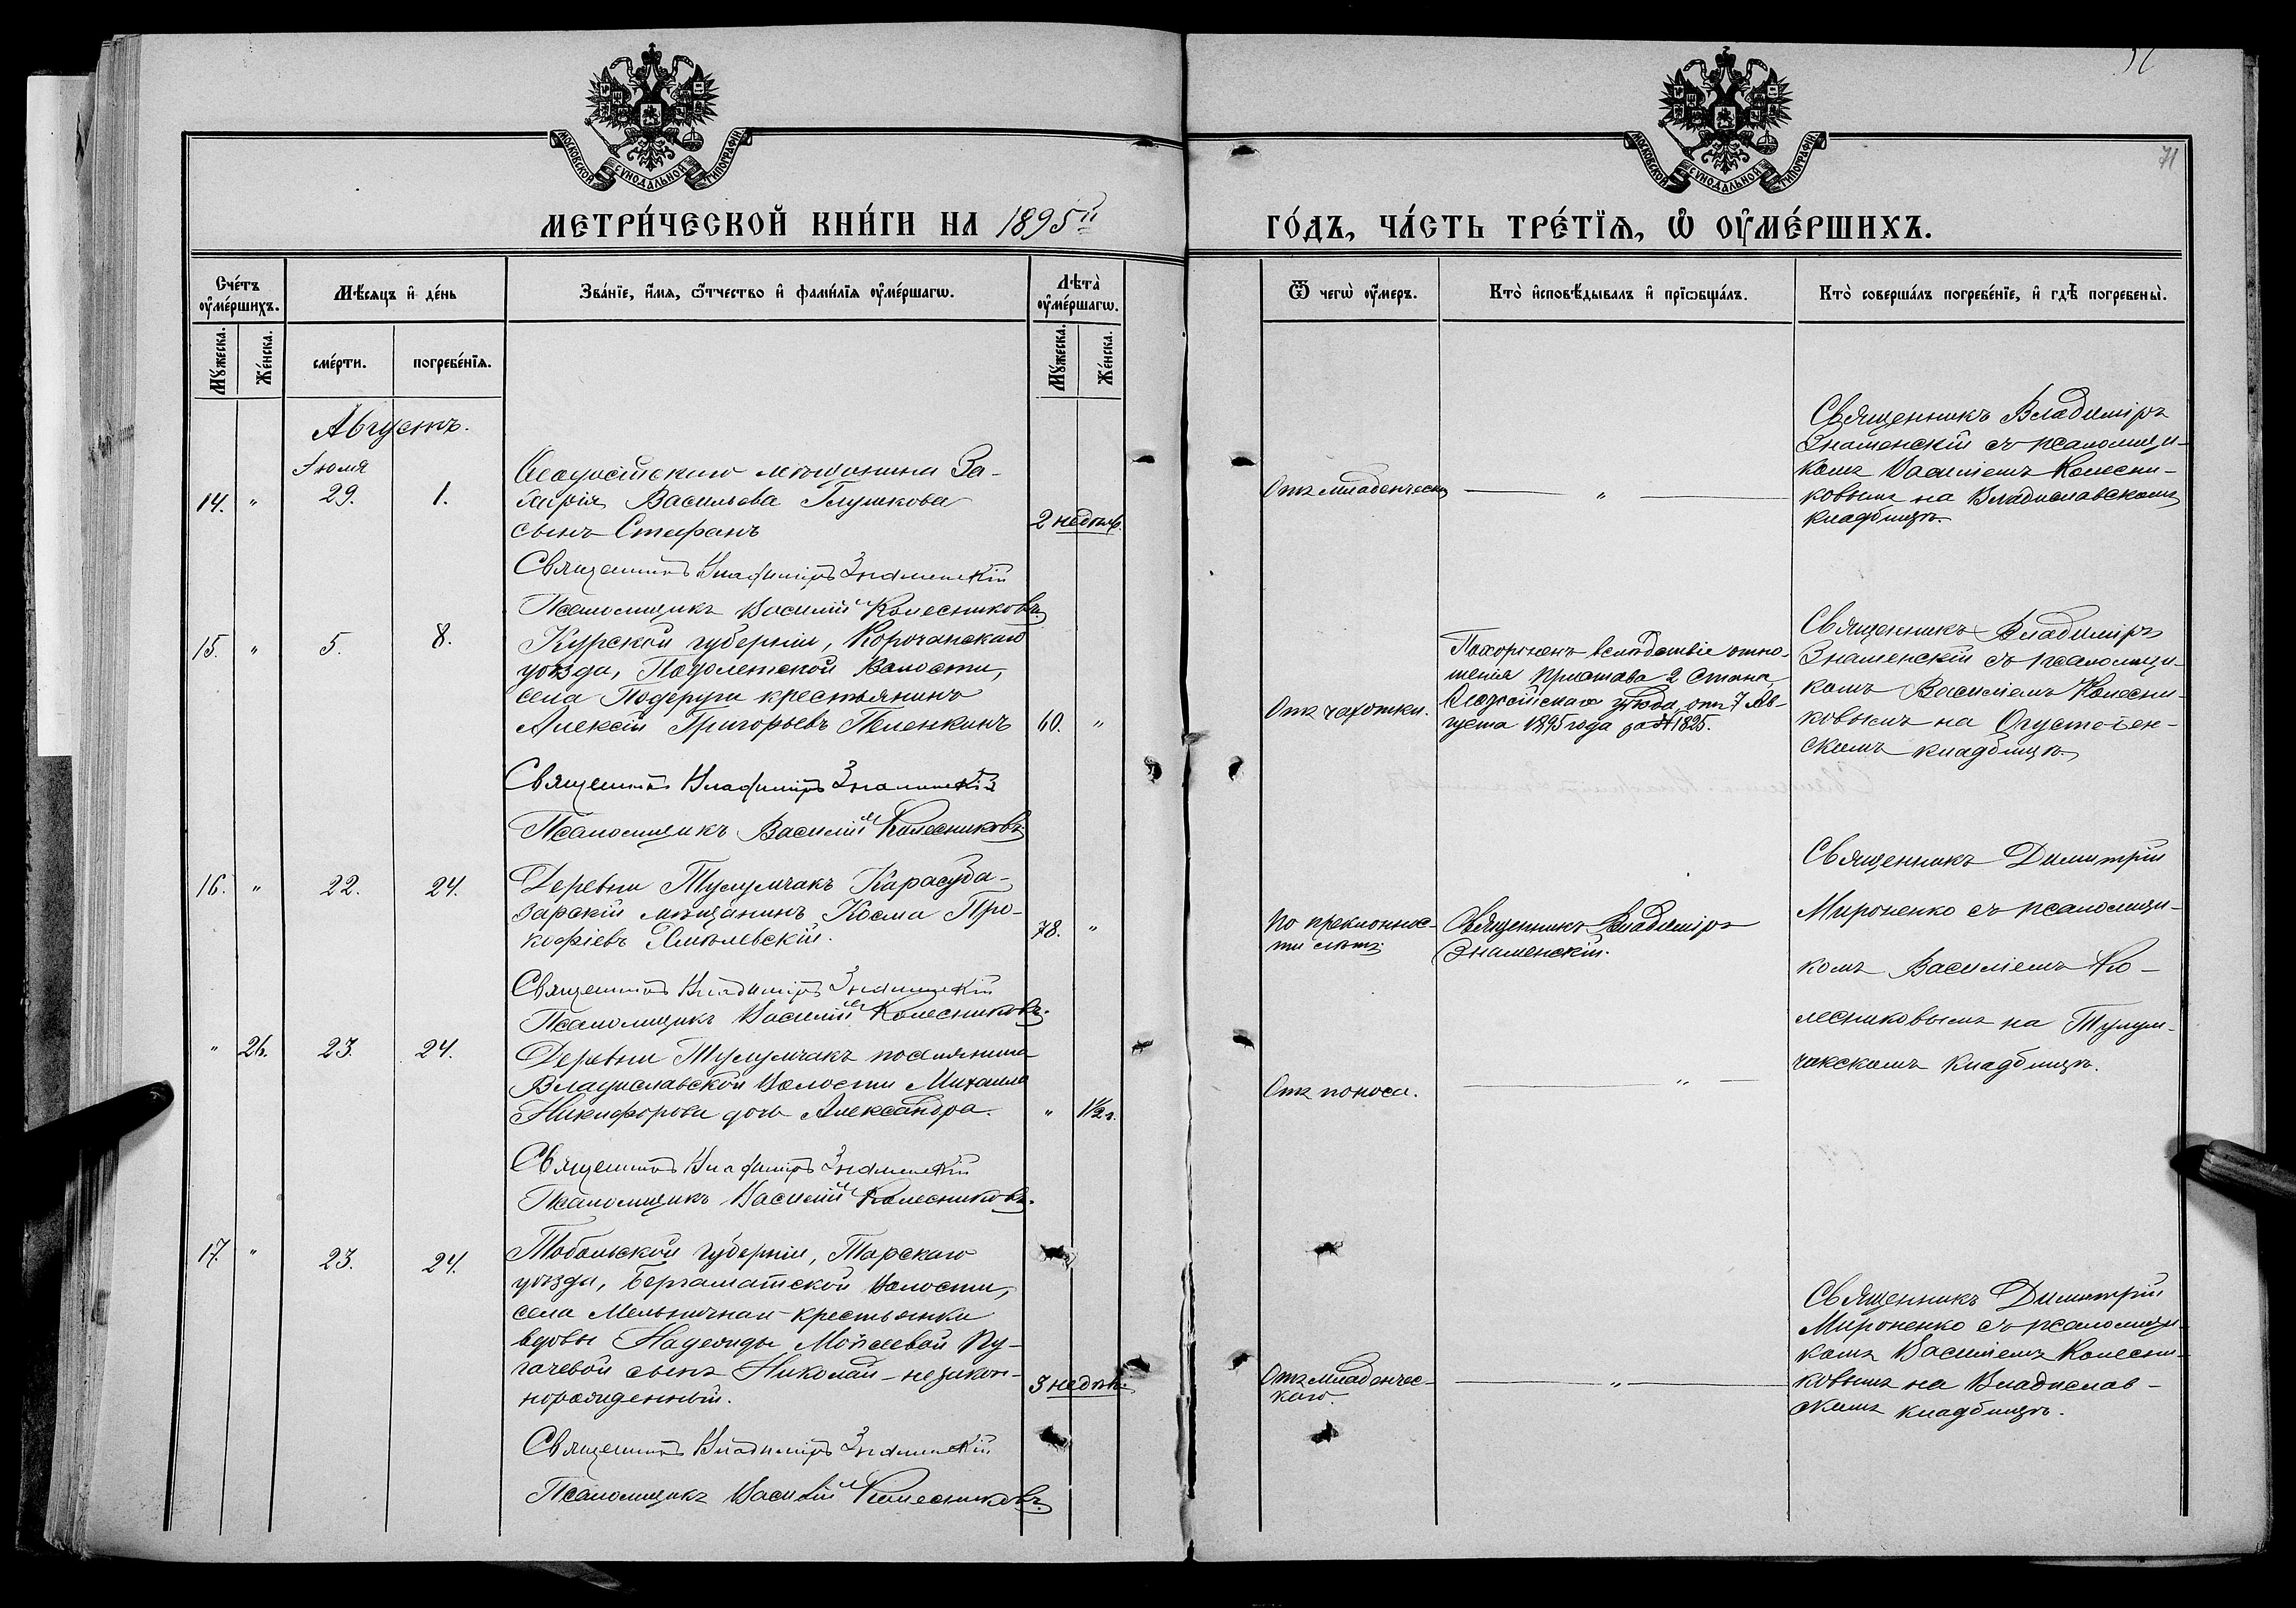 71
МОСКОВСКОЙ СѴНОДАЛЬНОЙ ТИПОГРАФІИ
МОСКОВСКОЙ СѴНОДАЛЬНОЙ ТИПОГРАФІИ
МЕТРИ́ЧЕСКОЙ КНИ́ГИ НА 1895й
ГО́ДЪ, ЧА́СТЬ ТРЕ́ТЇѦ, Ѡ ОУ҆МЕ́РШИХЪ.
Сче́тъ оу҆ме́ршихъ.
Мѣ́сяцъ и де́нь
Зва́нїе, и҆́мѧ, ѻ҆́тчество и҆ фами́лїѧ оу҆ме́ршагѡ.
Лѣта̀ оу҆ме́ршагѡ.
Ѿ чегѡ̀ оу҆́меръ.
Кто̀ и҆сповѣ́дывалъ и҆ прїѡбща́лъ.
Кто̀ соверша́лъ погребе́нїе, и҆ гдѣ̀ погребены̀.
Мꙋ́жеска.
Же́нска.
сме́рти.
погребе́нїѧ.
Мꙋ́жеска.
Же́нска.
Августъ.
Іюля
14. " 29. 1.
Ѳеодосійскаго мѣщанина За-
харія Васильева Глушкова
сынъ Стефанъ
2 недѣль
Отъ младенческ
"
Священникъ Владиміръ
Знаменскій съ псаломщи-
комъ Василіемъ Колесни-
ковымъ на Владиславскомъ
кладбищѣ.
Священникъ Владиміръ Знаменскій
Псаломщикъ Василій Колесниковъ
15. " 5. 8.
Курской губерніи, Корочанскаго
уѣзда, волости,
села крестьянинъ
Алексій Григорьевъ Пеленкинъ
60. "
Отъ чахотки.
Похороненъ вслѣдствіе отно-
шенія Пристава 2 Стана
Ѳеодосійскаго уѣзда, отъ 7 Ав-
густа 1895 года за № 1825.
Священникъ Владиміръ
Знаменскій съ псаломщи-
комъ Василіемъ Колесни-
ковымъ на
скомъ кладбищѣ.
Священникъ Владиміръ Знаменскій
Псаломщикъ Василій Колесниковъ
16. " 22. 24.
Деревни Тулумчакъ Карасуба-
зарскій мѣщанинъ Косма Про-
кофіевъ Хмѣлевскій.
78. "
По преклоннос-
ти лѣтъ.
Священникъ Владиміръ
Знаменскій.
Священникъ Димитрій
Мироненко съ псаломщи-
комъ Василіемъ Ко-
лесниковымъ на Тулум-
чакскомъ кладбищѣ.
Священникъ Владиміръ Знаменскій
Псаломщикъ Василій Колесниковъ.
" 26. 23. 24.
Деревни Тулумчакъ поселянина
Владиславской Волости Михаила
Никифорова дочь Александра.
" 1½ г.
Отъ поноса.
"
Священникъ Владиміръ Знаменскій
Псаломщикъ Василій Колесниковъ.
17. " 23. 24.
Тобольской губерніи, Тарскаго
уѣзда, Бергаматской Волости,
села Мельничнаи крестьянки
вдовы Надежды Мойсеевой Пу-
гачевой сынъ Николай - незакон-
норожденный.
3 недѣль
Отъ младенчес-
каго.
"
Священникъ Димитрій
Мироненко съ псаломщи-
комъ Василіемъ Колесни-
ковымъ на Владислав-
скомъ кладбищѣ.
Священникъ Владиміръ Знаменскій
Псаломщикъ Василій Колесниковъ.